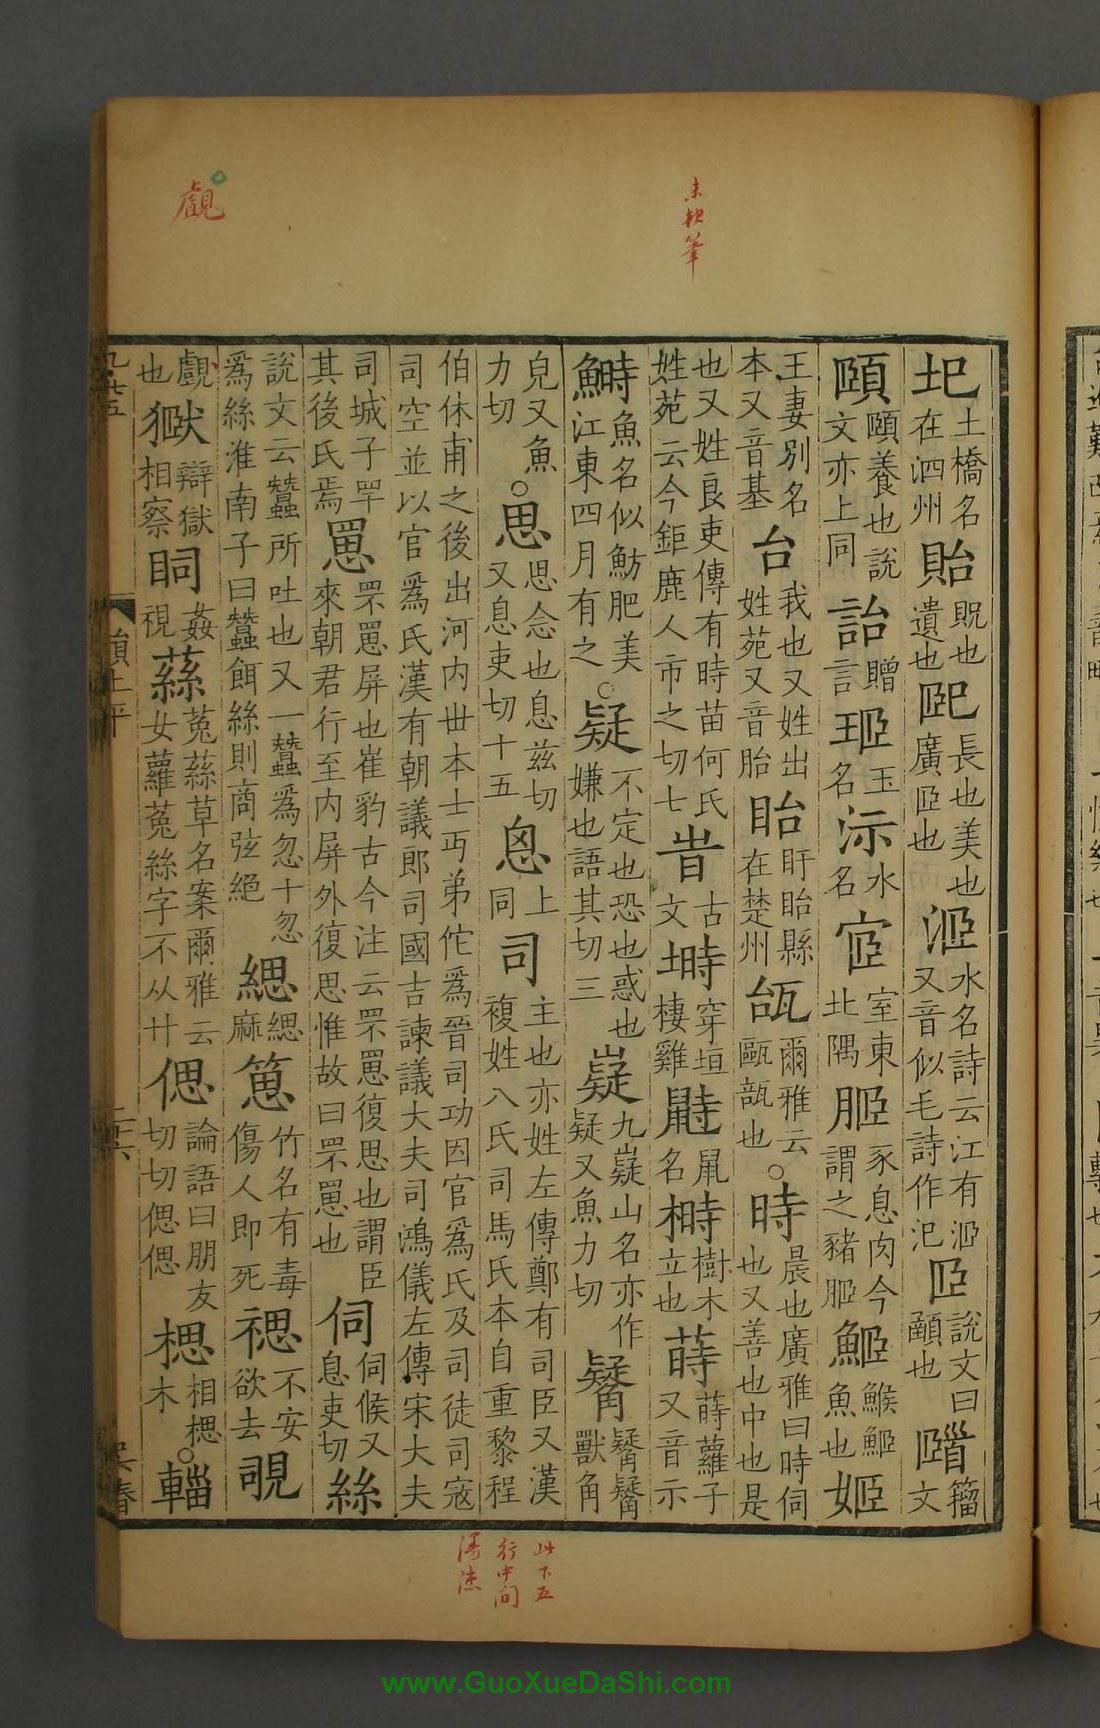 圯土橋名在泗州貽貺也遺也𦣞長也美也廣𦣝也洍水名詩云江有洍又音似毛詩作汜𦣝說文曰顄也𦣠籀文
頤頤養也說文亦上同詒贈言𤥀玉名沶水名宧室東北隅𦛗豕息肉今謂之豬𦛗䱌鯸䱌魚也姬
王妻別名本又音基台我也又姓出姓苑又音胎眙盱眙縣在楚州瓵爾雅云甌瓿也○時晨也廣雅曰時伺也又善也中也是
也又姓良吏傳有時苗何氏姓苑云今鉅鹿人市之切七旹古文塒穿垣棲雞鼭鼠名榯樹木立也蒔蒔蘿子又音示
鰣魚名似魴肥美江東四月有之○疑不定也恐也惑也嫌也語其切三嶷九嶷山名亦作疑又魚力切觺觺觺獸角
皃又魚力切○思思念也息兹切又息吏切十五恖上同司主也亦姓左傳鄭有司臣又漢複姓八氏司馬氏本自重黎程
伯休甫之後出河内世本士丐弟佗爲晉司功因官爲氏及司徒司寇司空並以官爲氏漢有朝議郎司國吉諫議大夫司鴻儀左傳宋大夫
司城子罕其後氏焉罳罘罳屏也崔豹古今注云罘罳復思也謂臣來朝君行至内屏外復思惟故曰罘罳也伺伺候又息吏切絲
說文云蠶所吐也又一蠶爲忽十忽爲絲淮南子曰蠶餌絲則商弦絕緦緦麻䈢竹名有毒傷人即死禗不安欲去覗
覰也㺇辯獄相察𥅆姦視蕬菟蕬草名案爾雅云女蘿菟絲字不从艹偲論語曰朋友切切偲偲楒相楒木○輜
頤上平
二六
吴春
覰
未軼筆
此下五
行中间
漫漶
www.GuoXueDaShi.com